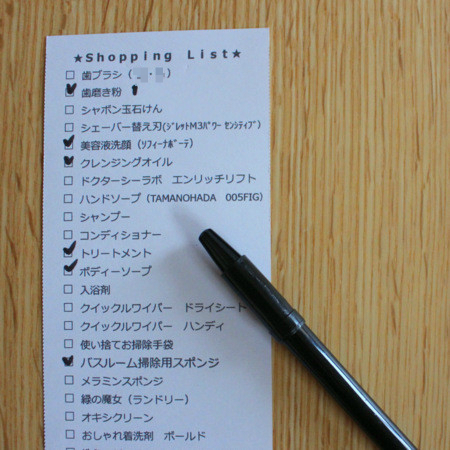 ★Shopping List★
☐ 歯ブラシ（ ・ ）
☑ 歯磨き粉
☐ シャボン玉石けん
☐ シェーバー替え刃(ｼﾞﾚｯﾄM3ﾊﾟﾜｰ ｾﾝｼﾃｨﾌﾞ)
☑ 美容液洗顔（ｿﾌｨｰﾅﾎﾞｰﾃ）
☑ クレンジングオイル
☐ ドクターシーラボ　エンリッチリフト
☐ ハンドソープ（TAMANOHADA　005FIG）
☐ シャンプー
☐ コンディショナー
☑ トリートメント
☑ ボディーソープ
☐ 入浴剤
☐ クイックルワイパー　ドライシート
☐ クイックルワイパー　ハンディ
☐ 使い捨てお掃除手袋
☑ バスルーム掃除用スポンジ
☐ メラミンスポンジ
☐ 緑の魔女（ランドリー）
☐ オキシクリーン
☐ おしゃれ着洗剤　ボールド